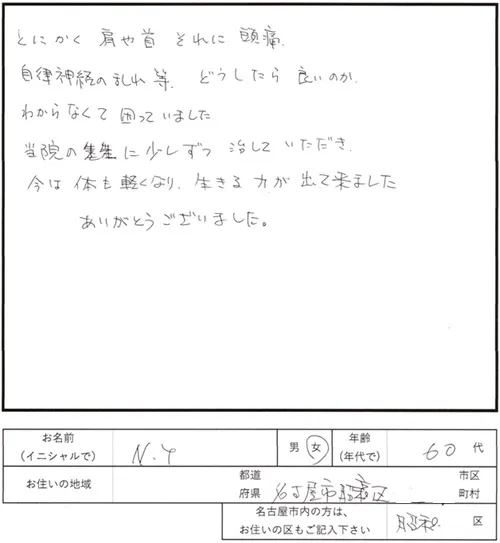 とにかく 肩や首 それに 頭痛.
自律神経の乱れ 等. どうしたら 良いのか.
わからなくて 困っていました
当院の先生に 少しずつ 治して いただき.
今は 体も 軽くなり. 生きる 力が 出て来ました
ありがとうございました。
お名前
(イニシャルで)
N.Y
男 女
年齢
(年代で)
60 代
お住いの地域
都道
府県
名古屋市昭和区
市区
町村
名古屋市内の方は、
お住いの区もご記入下さい
昭和 区